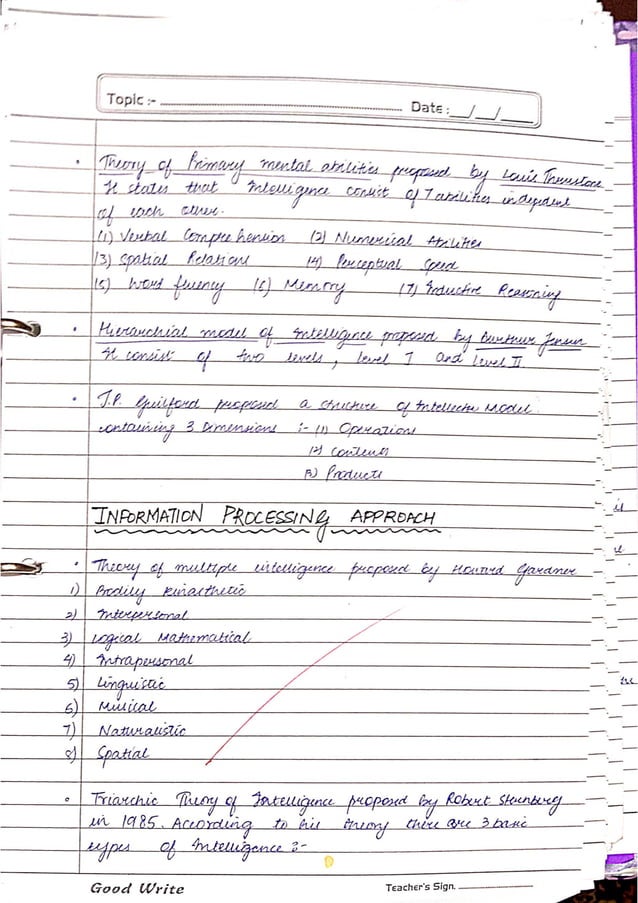 Topic :- Date : __/__/__
• Theory of Primary mental abilities proposed by Louis Thurstone
It states that Intelligence consist of 7 abilities indepdent
of each other.
(1) Verbal Comprehension (2) Numerical Abilities
(3) Spatial Relations (4) Perceptual Speed
(5) Word fluency (6) Memory (7) Inductive Reasoning
• Hierarchial model of Intelligence proposed by Jensen
It consist of two levels, Level I and Level II.
• J.P. Guilford proposed a structure of Intellect Model
containing 3 Dimensions :- (1) Operations
(2) Contents
(3) Products
INFORMATION PROCESSING APPROACH
• Theory of multiple intelligence proposed by Howard Gardner
1) Bodily Kinaesthetic
2) Interpersonal
3) Logical Mathematical
4) Intrapersonal
5) Linguistic
6) Musical
7) Naturalistic
8) Spatial
• Triarchic Theory of Intelligence proposed by Robert Sternberg
in 1985. According to his theory there are 3 basic
types of Intelligence :-
Good Write Teacher's Sign.